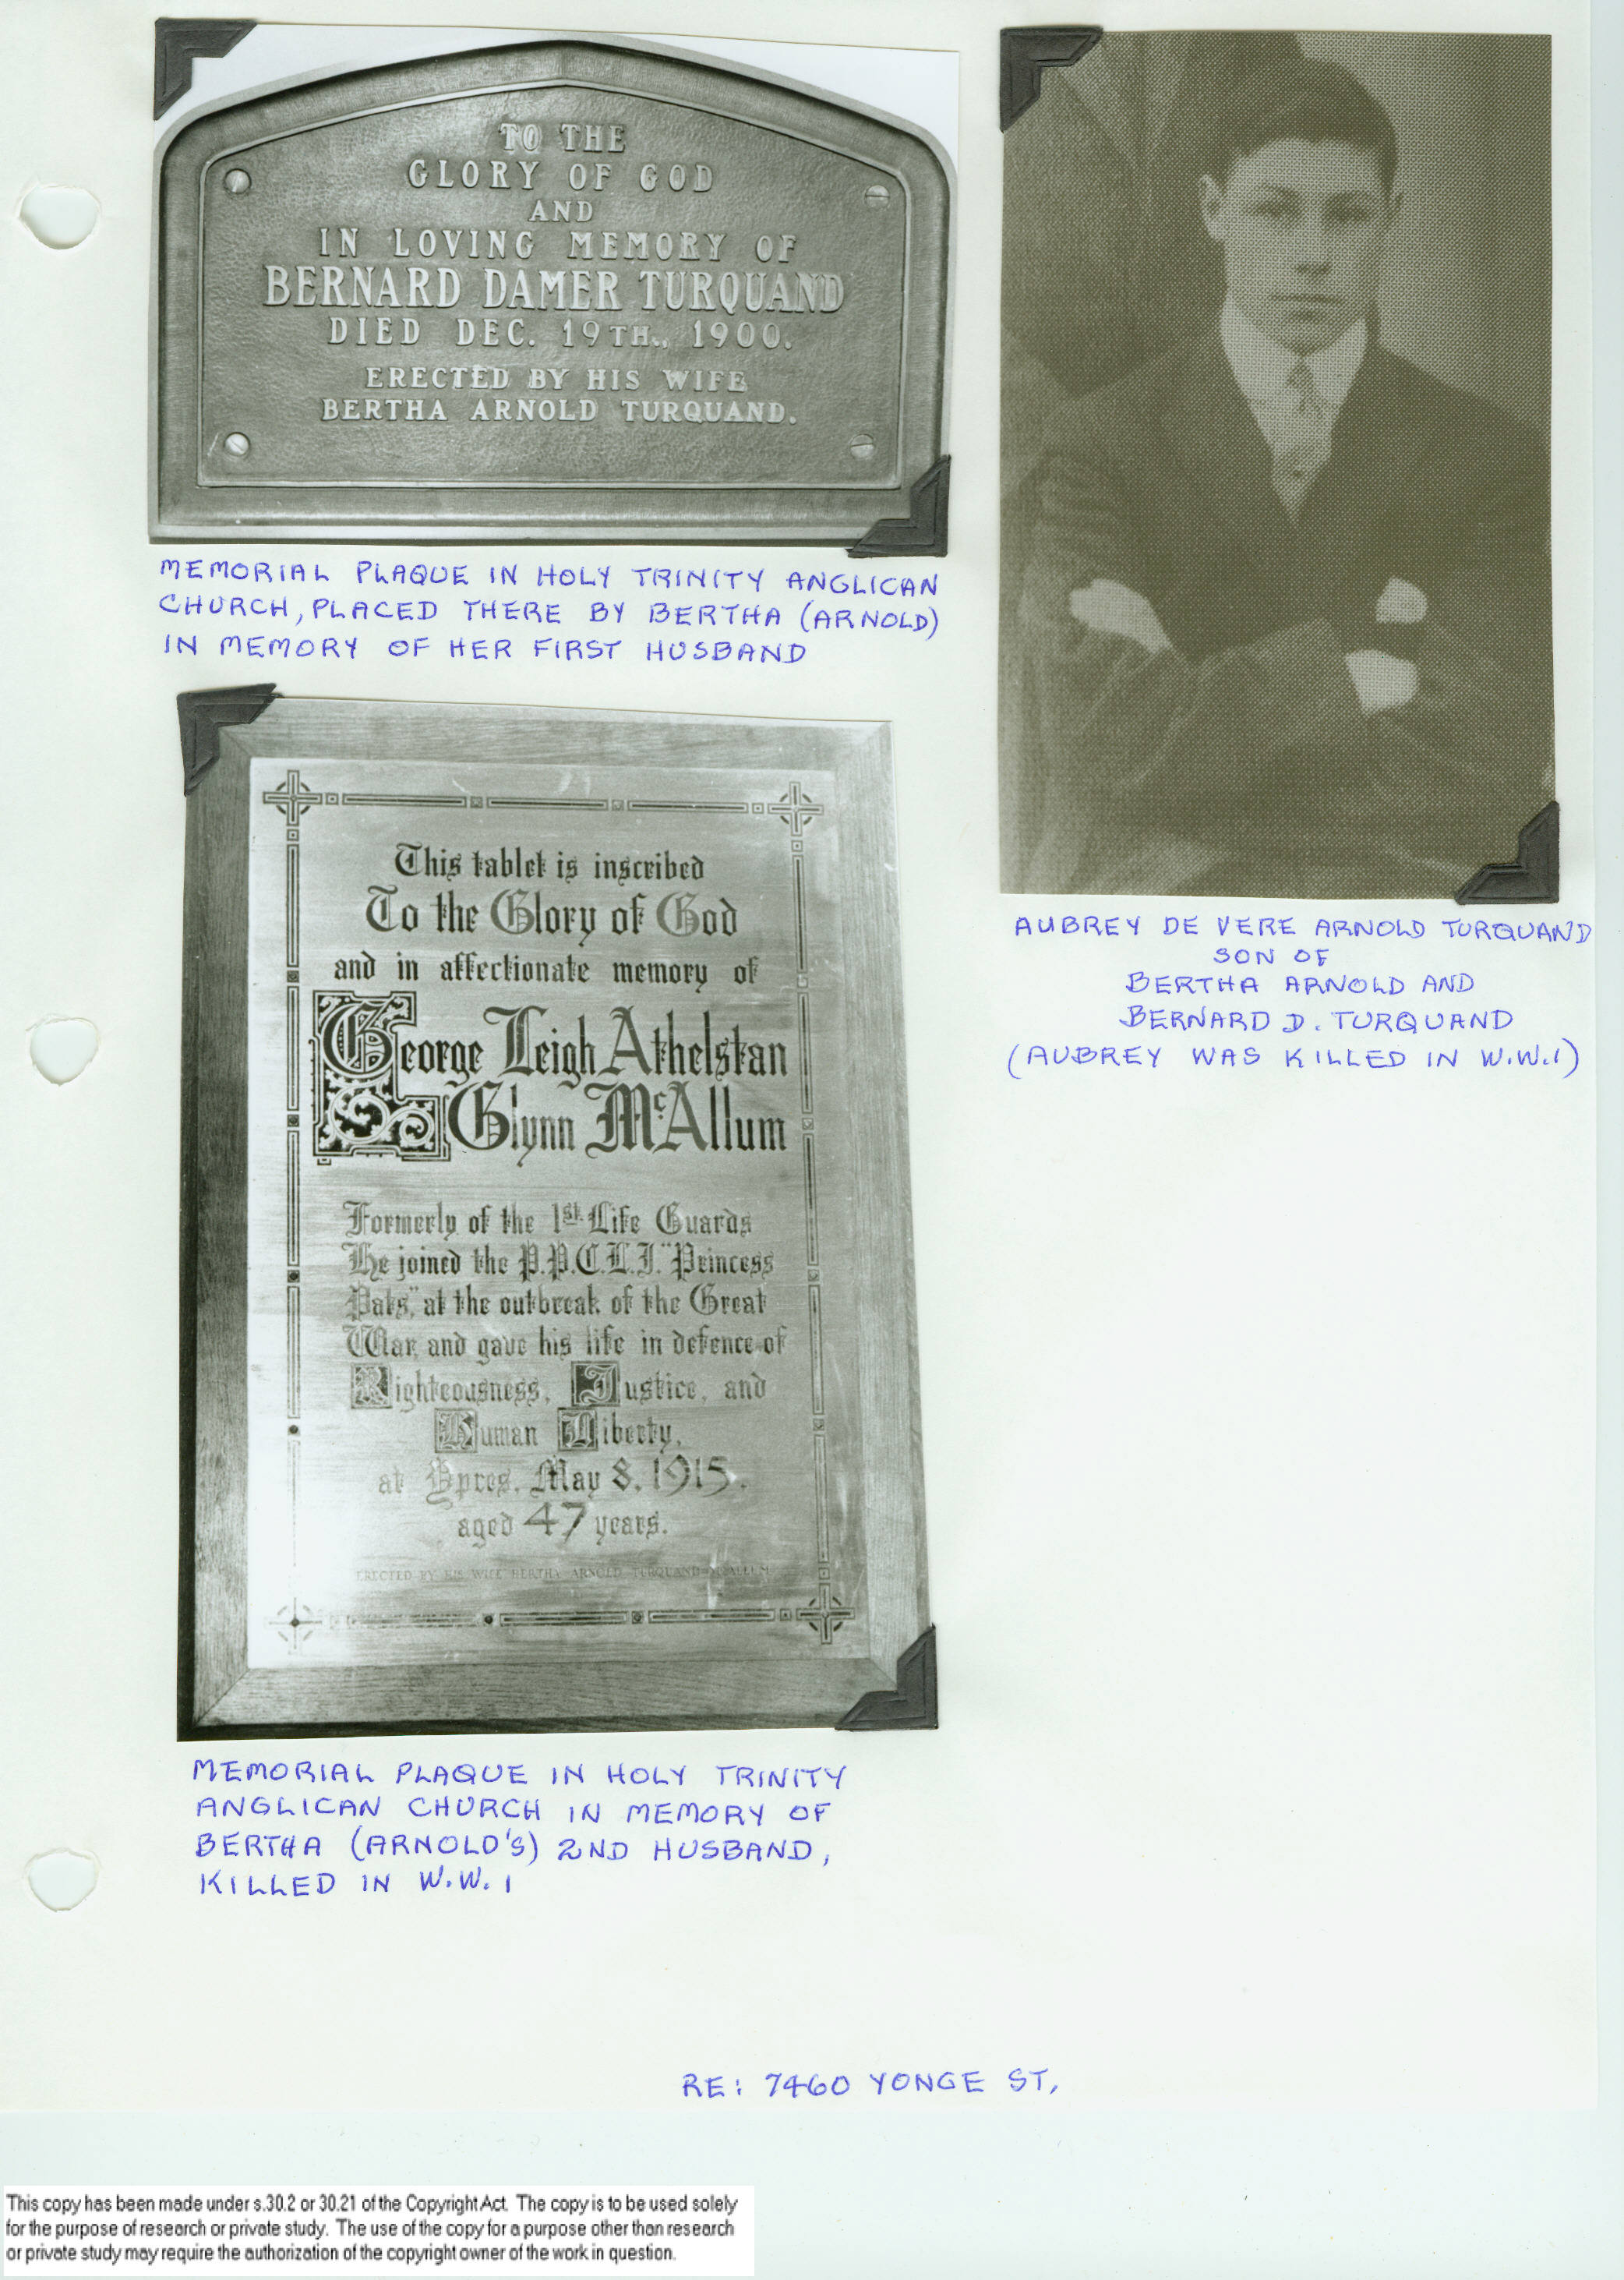 TO THE
GLORY OF GOD
AND
IN LOVING MEMORY OF
BERNARD DAMER TURQUAND
DIED DEC. 19TH., 1900.
ERECTED BY HIS WIFE
BERTHA ARNOLD TURQUAND.
MEMORIAL PLAQUE IN HOLY TRINITY ANGLICAN
CHURCH, PLACED THERE BY BERTHA (ARNOLD)
IN MEMORY OF HER FIRST HUSBAND
AUBREY DE VERE ARNOLD TURQUAND
SON OF
BERTHA ARNOLD AND
BERNARD D. TURQUAND
(AUBREY WAS KILLED IN W.W.1)
This tablet is inscribed
To the Glory of God
and in affectionate memory of
George Leigh Athelstan
Glynn McAllum
Formerly of the 1st Life Guards
He joined the P.P.C.L.I. "Princess
Pats", at the outbreak of the Great
War, and gave his life in defence of
Righteousness, Justice, and
Human Liberty,
at Ypres, May 8, 1915.
aged 47 years.
ERECTED BY HIS WIFE BERTHA ARNOLD TURQUAND McALLUM
MEMORIAL PLAQUE IN HOLY TRINITY
ANGLICAN CHURCH IN MEMORY OF
BERTHA (ARNOLD'S) 2ND HUSBAND,
KILLED IN W.W. 1
RE: 7460 YONGE ST,
This copy has been made under s.30.2 or 30.21 of the Copyright Act. The copy is to be used solely
for the purpose of research or private study. The use of the copy for a purpose other than research
or private study may require the authorization of the copyright owner of the work in question.